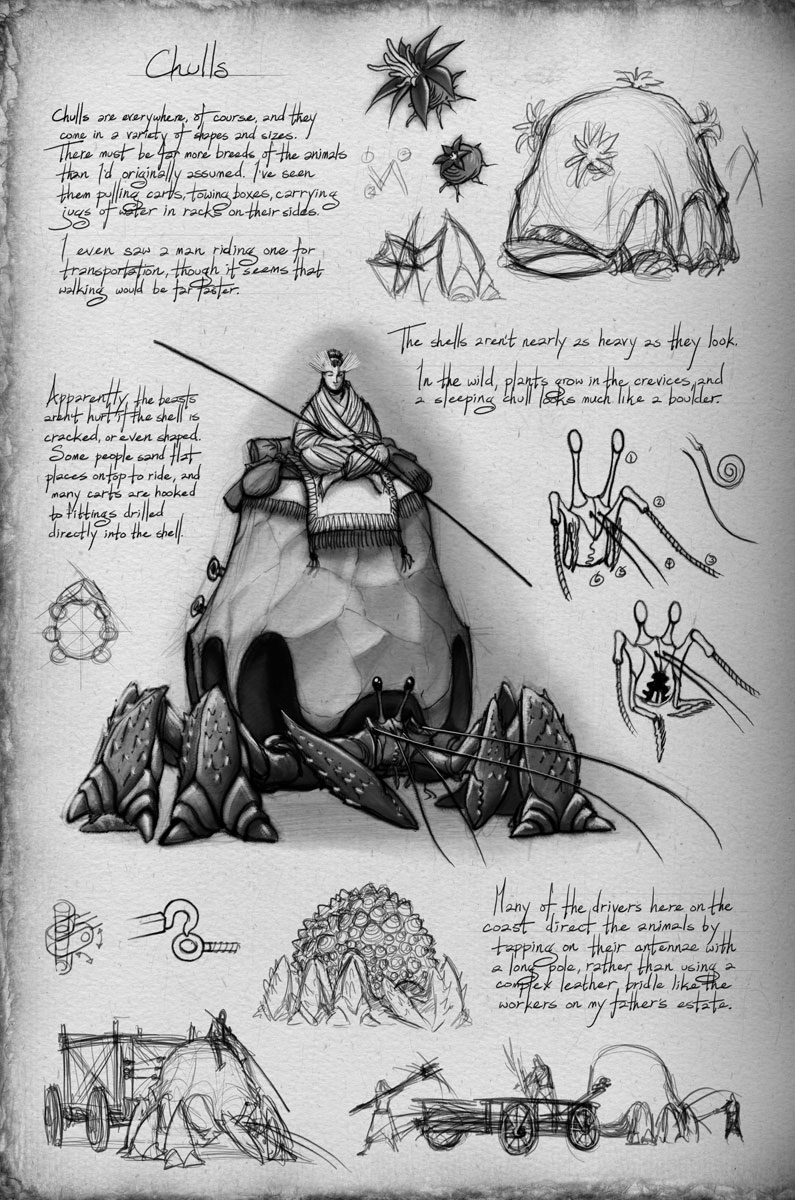 Chulls
Chulls are everywhere, of course, and they
come in a variety of shapes and sizes.
There must be far more breeds of the animals
than I'd originally assumed. I've seen
them pulling carts, towing boxes, carrying
jugs of water in racks on their sides.
I even saw a man riding one for
transportation, though it seems that
walking would be far faster.
The shells aren't nearly as heavy as they look.
In the wild, plants grow in the crevices, and
a sleeping chull looks much like a boulder.
Apparently, the beasts
aren't hurt if the shell is
cracked, or even shaped.
Some people sand flat
places on top to ride, and
many carts are hooked
to fittings drilled
directly into the shell.
1
2
3
4
5
6
Many of the drivers here on the
coast direct the animals by
tapping on their antennae with
a long pole, rather than using a
complex leather bridle like the
workers on my father's estate.